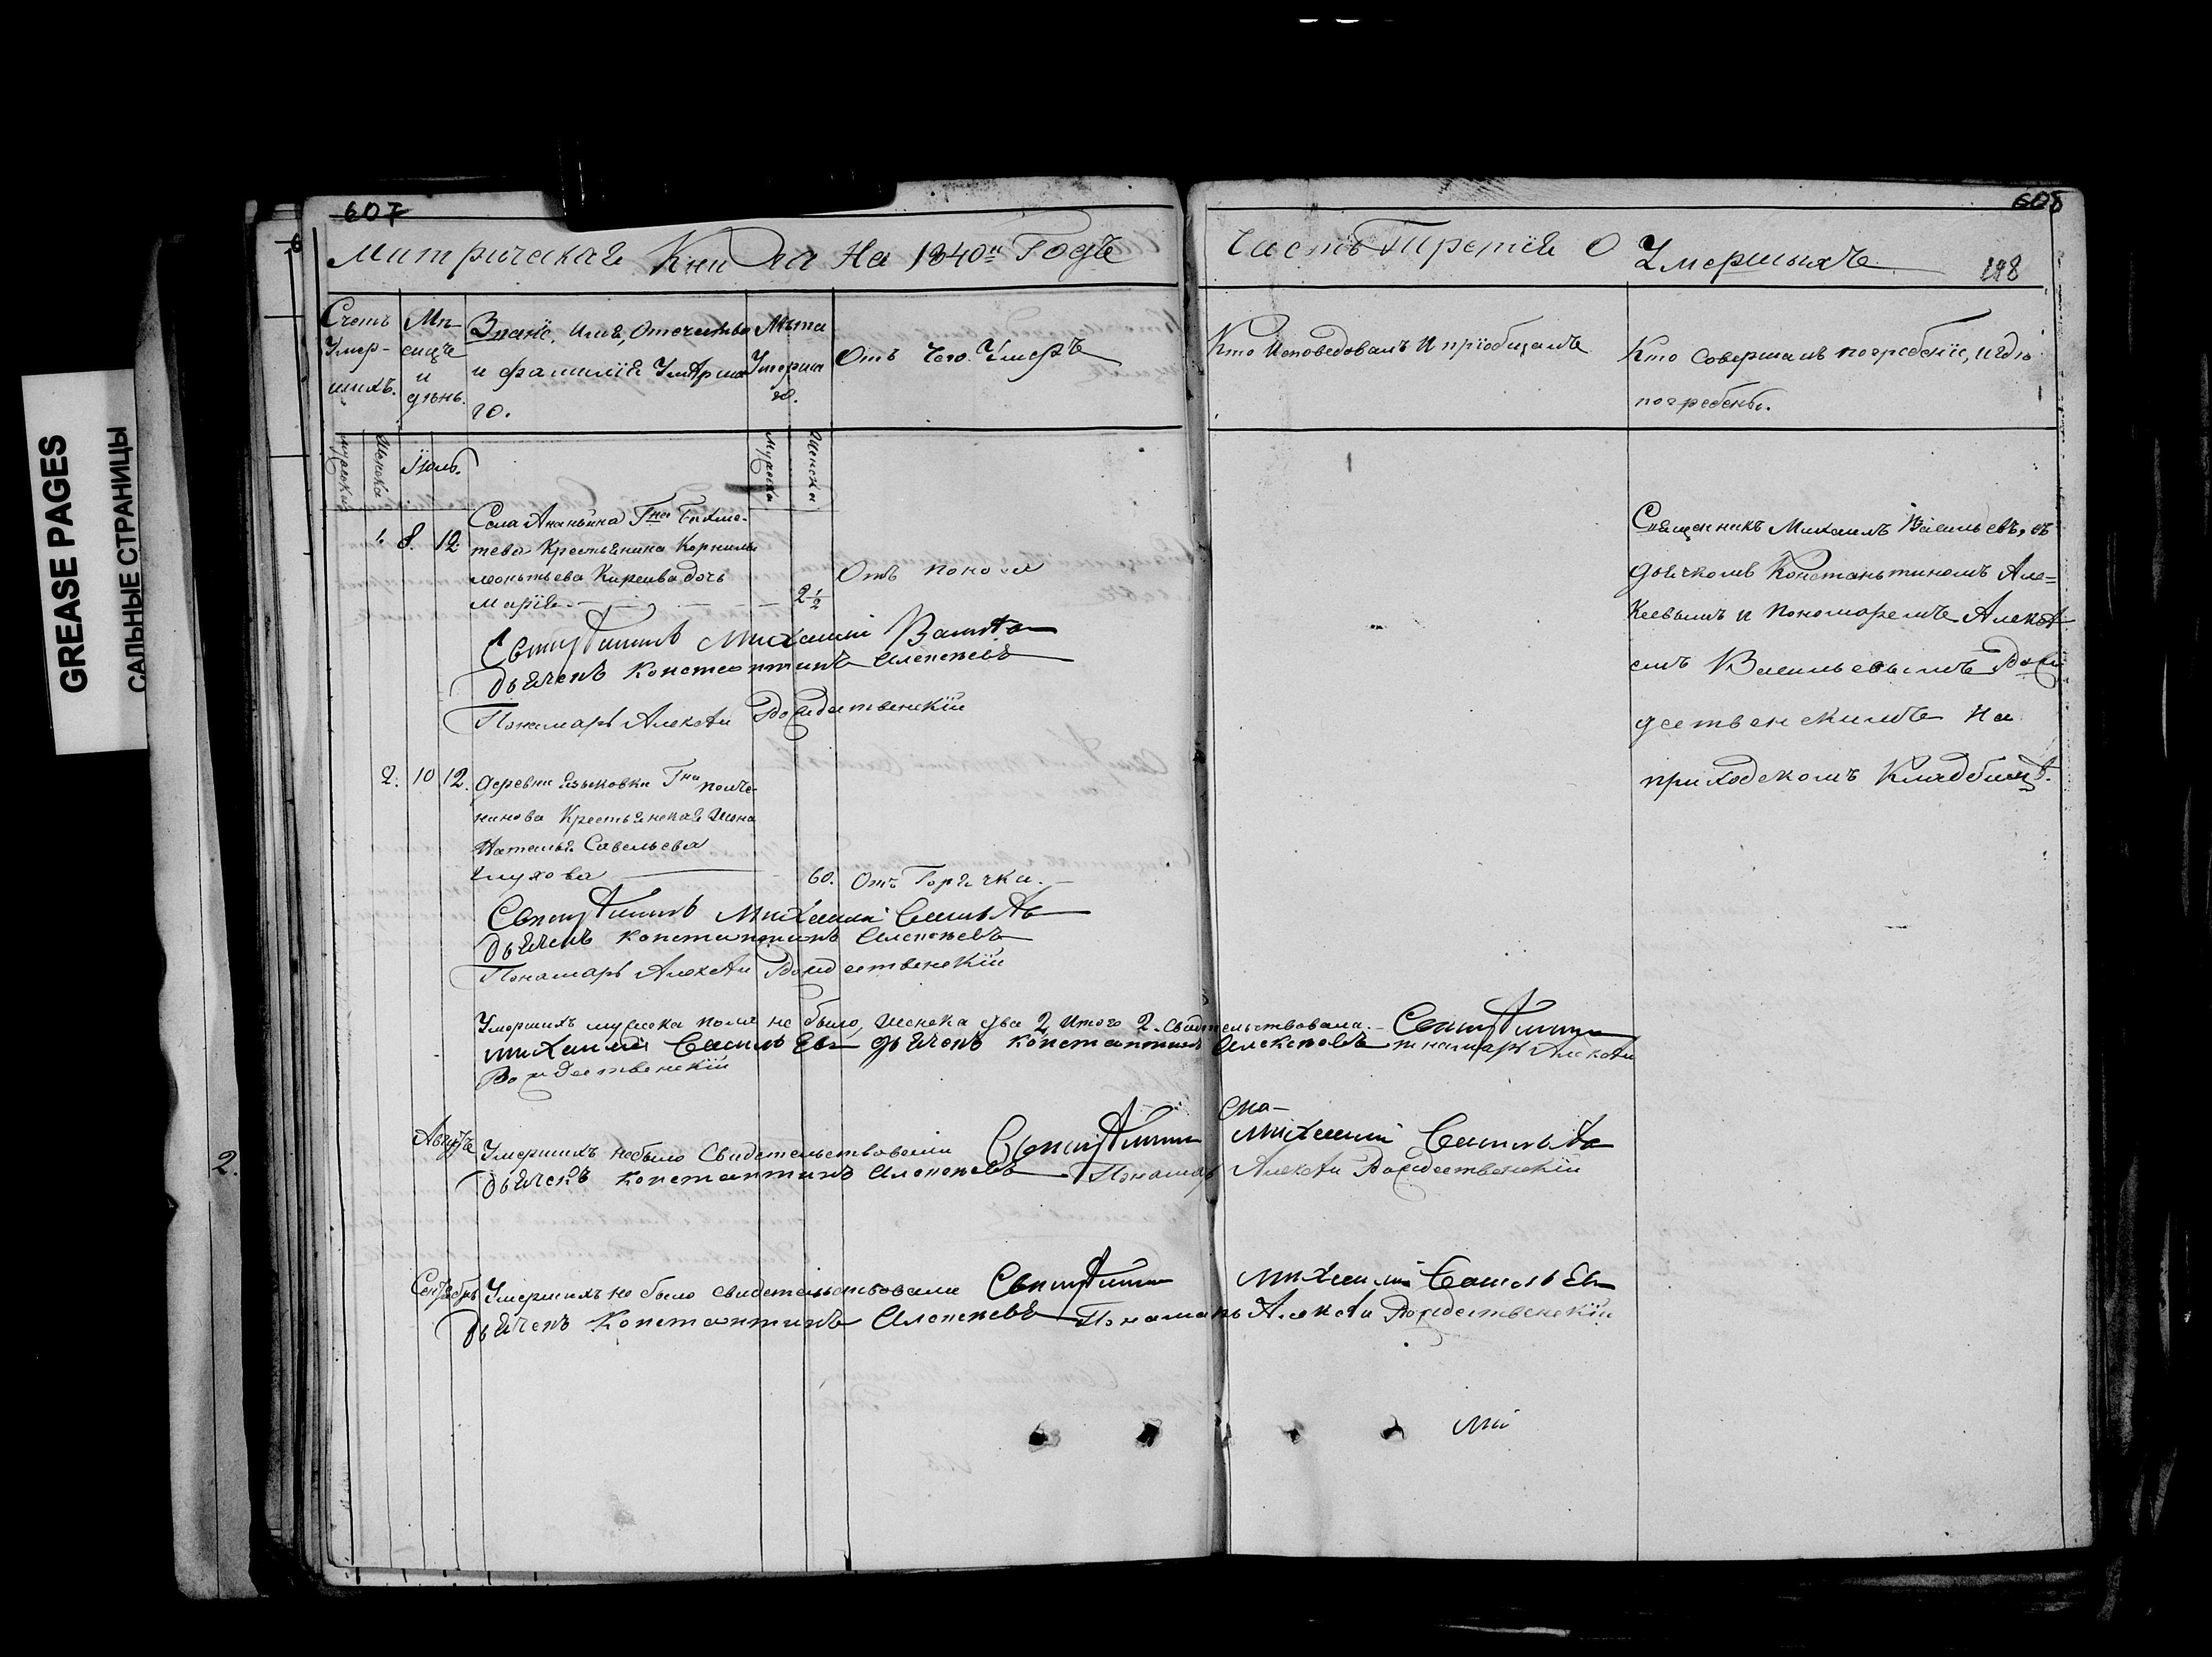 GREASE PAGES
САЛЬНЫЕ СТРАНИЦЫ
607
608
Митрическая Книга На 1840й Годъ
Часть Третiя О Умершихъ
Счетъ Умер-шихъ.
Мѣ-сяцъ и день.
Званiе, имя, отечество и фамилiя Умерша го.
Лѣта Умерша го.
Отъ чего Умеръ
Кто Исповедовалъ И прiобщалъ
Кто совершалъ погребенiе, и гдѣ погребенъ.
мужска
женска
Iюль.
мужска
женска
1. 8. 12.
Села Ананьина Гна Бахме-
тева Крестьянина Корнилы
леонтьева Киреива дочь
Марiя
2 1/2
Отъ поноса
Священникъ Михаилъ Васильевъ
Дьячекъ Константинъ Алексѣевъ
Пономарь Алексѣи Рождественскiи
Священникъ Михаилъ Васильевъ, съ
дьячкомъ Константиномъ Але=
ксевымъ и пономаремъ Алексѣ
емъ Васильевымъ Рож
дественскимъ На
приходскомъ Кладбищѣ.
2. 10 12.
деревни Языковки Гна
Крестьянская жена
Наталья Савельева
Глухова
60. Отъ Горячки.
Священникъ Михаилъ Васильевъ
Дьячекъ Константинъ Алексѣевъ
Пономарь Алексѣи Рождественскiи
Умершихъ мужска пола не было, женска два 2 Итого 2. Свидетельствовали. Священникъ
Михаилъ Васильевъ дьячекъ Константинъ Алексѣевъ пономарь Алексѣи
Рождественскiи
Августъ
Умершихъ небыло Свидетельствовали Священникъ Михаилъ Васильевъ
Дьячекъ Константинъ Алексѣевъ Пономарь Алексѣи Рождественскiи
Сентябрь
Умершихъ не было свидетельствовали Священникъ Михаилъ Васильевъ
Дьячекъ Константинъ Алексѣевъ Пономарь Алексѣи Рождественскiи
2.